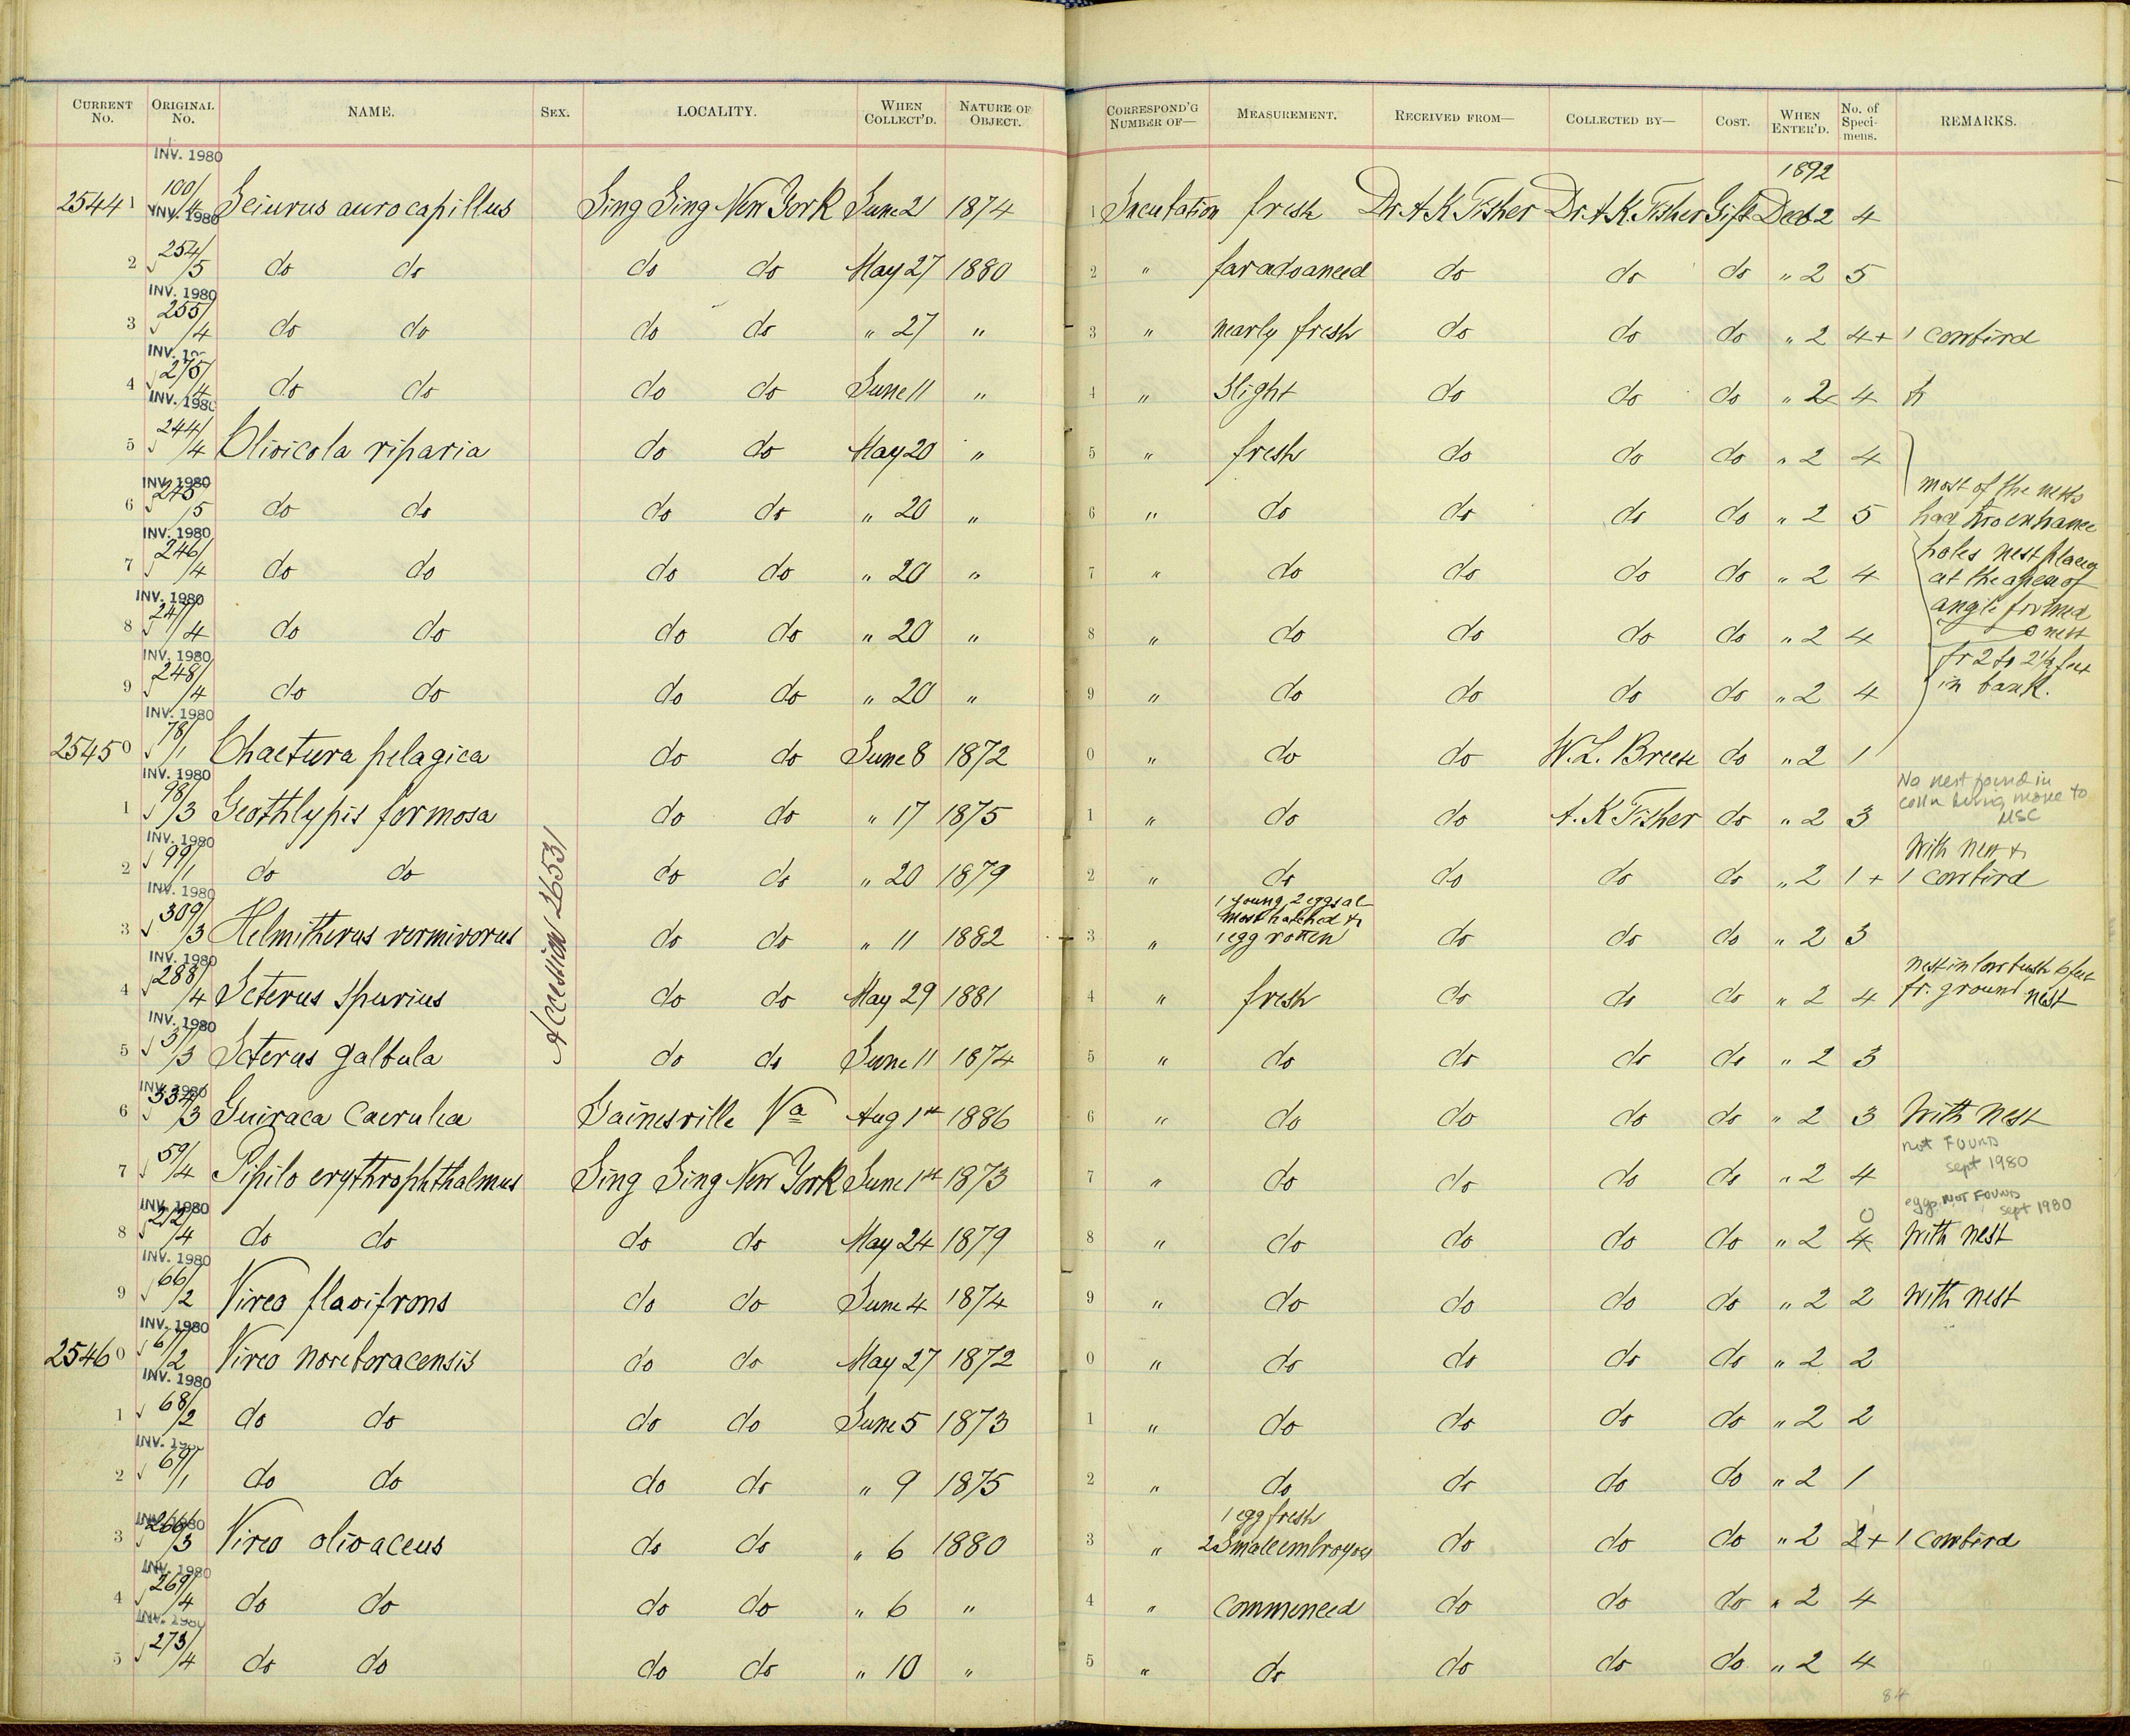 CURRENT No. ORIGINAL No. NAME. SEX. LOCALITY. WHEN COLLECT'D. NATURE OF OBJECT. CORRESPOND'G NUMBER OF— MEASUREMENT. RECEIVED FROM— COLLECTED BY— COST. WHEN ENTER'D. No. of Speci- mens. REMARKS.
INV. 1980 1892
25441 100/4 Seiurus aurocapillus Sing Sing New York June 21 1874 1 Incubation fresh Dr. A K Fisher Dr. A. K. Fisher Gift Dec 2 4
INV. 1980
2 254/5 do do do do May 27 1880 2 " far advanced do do do " 2 5
INV. 1980
3 255/4 do do do do " 27 " 3 " nearly fresh do do do " 2 4 + 1 cowbird
INV.
4 275/4 do do do do June 11 " 4 " slight do do do " 2 4
INV. 1980
5 244/4 Clivicola riparia do do May 20 " 5 " fresh do do do " 2 4
INV. 1980 most of the nests
6 245/5 do do do do " 20 " 6 " do do do do " 2 5 had two entrance
INV. 1980 holes nest placed
7 246/4 do do do do " 20 " 7 " do do do do " 2 4 at the apex of
INV. 1980 angle formed
8 247/4 do do do do " 20 " 8 " do do do do " 2 4 nest
INV. 1980 fr 2 to 2 1/2 feet
9 248/4 do do do do " 20 " 9 " do do do do " 2 4 in bank.
INV. 1980
25450 78/1 Chaetura pelagica do do June 8 1872 0 " do do W. L. Breese do " 2 1
INV. 1980 No nest found in
coll'n during move to
1 98/3 Geothlypis formosa do do " 17 1875 1 " do do A. K Fisher do " 2 3 MSC
INV. 1980 With nest &
2 99/1 do do do do " 20 1879 2 " do do do do " 2 1 + 1 cowbird
INV. 1980 1 young, 2 eggs al
most hatched &
3 309/3 Helmitherus vermivorus do do " 11 1882 3 " 1 egg rotten do do do " 2 3
INV. 1980 nest in low bush 6 feet
4 288/4 Icterus spurius do do May 29 1881 4 " fresh do do do " 2 4 fr. ground nest
INV. 1980
5 37/3 Icterus galbula do do June 11 1874 5 " do do do do " 2 3
Accession 26531
INV. 1980
6 334/3 Guiraca caerulea Gainesville Va Aug 1st 1886 6 " do do do do " 2 3 With nest
not FOUND
sept 1980
7 59/4 Pipilo erythrophthalmus Sing Sing New York June 1st 1873 7 " do do do do " 2 4
INV. 1980 eggs NOT FOUND
sept 1980
8 212/4 do do do do May 24 1879 8 " do do do do " 2 4 0 With nest
INV. 1980
9 66/2 Vireo flavifrons do do June 4 1874 9 " do do do do " 2 2 With nest
INV. 1980
25460 67/2 Vireo noveboracensis do do May 27 1872 0 " do do do do " 2 2
INV. 1980
1 68/2 do do do do June 5 1873 1 " do do do do " 2 2
INV.
2 69/1 do do do do " 9 1875 2 " do do do do " 2 1
INV. 1980 1 egg fresh
3 266/3 Vireo olivaceus do do " 6 1880 3 " 2 small embroyos do do do " 2 2 + 1 cowbird
INV. 1980
4 269/4 do do do do " 6 " 4 " commenced do do do " 2 4
INV. 1980
5 273/4 do do do do " 10 " 5 " do do do do " 2 4
84